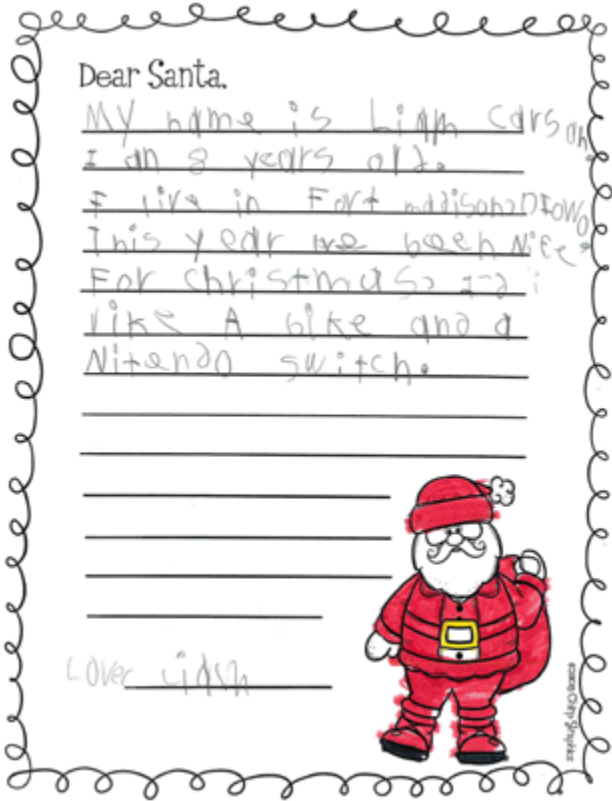 Dear Santa.
My name is Liam Carson.
I am 8 years old.
I live in Fort madison, Iowa
This year been Nice.
For christmas, I'd
like A bike and a
Nitendo switch.
Love, Liam